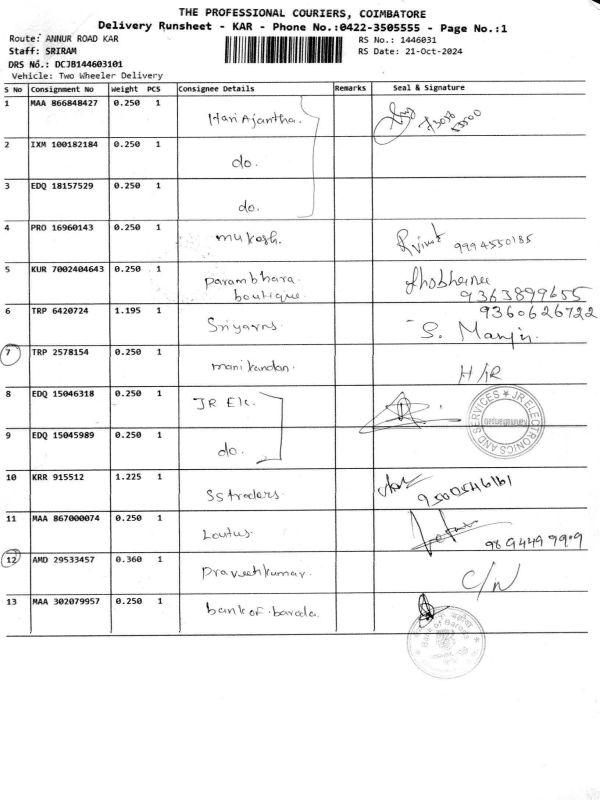 THE PROFESSIONAL COURIERS, COIMBATORE
Delivery Runsheet - KAR - Phone No.:0422-3505555 - Page No.:1
Route: ANNUR ROAD KAR RS No.: 1446031
Staff: SRIRAM RS Date: 21-Oct-2024
DRS No.: DCJB144603101
Vehicle: Two Wheeler Delivery
S No Consignment No Weight PCS Consignee Details Remarks Seal & Signature
1 MAA 866848427 0.250 1 Hari Ajantha.
2 IXM 100182184 0.250 1 do.
3 EDQ 18157529 0.250 1 do.
4 PRO 16960143 0.250 1 mukesh. 9994550185
5 KUR 7002404643 0.250 1 Parambhara boutique. 9363899655
6 TRP 6420724 1.195 1 Sriyarns. 9360626722
S.
7 TRP 2578154 0.250 1 manikandan.
8 EDQ 15046318 0.250 1 JR Ele. JR ELECTRONICS AND SERVICES
9 EDQ 15045989 0.250 1 do.
10 KRR 915512 1.225 1 SS traders.
11 MAA 867000074 0.250 1 Loutus.
12 AMD 29533457 0.360 1 Praveethkumar. C/N
13 MAA 302079957 0.250 1 bank of baroda. Bank of Baroda